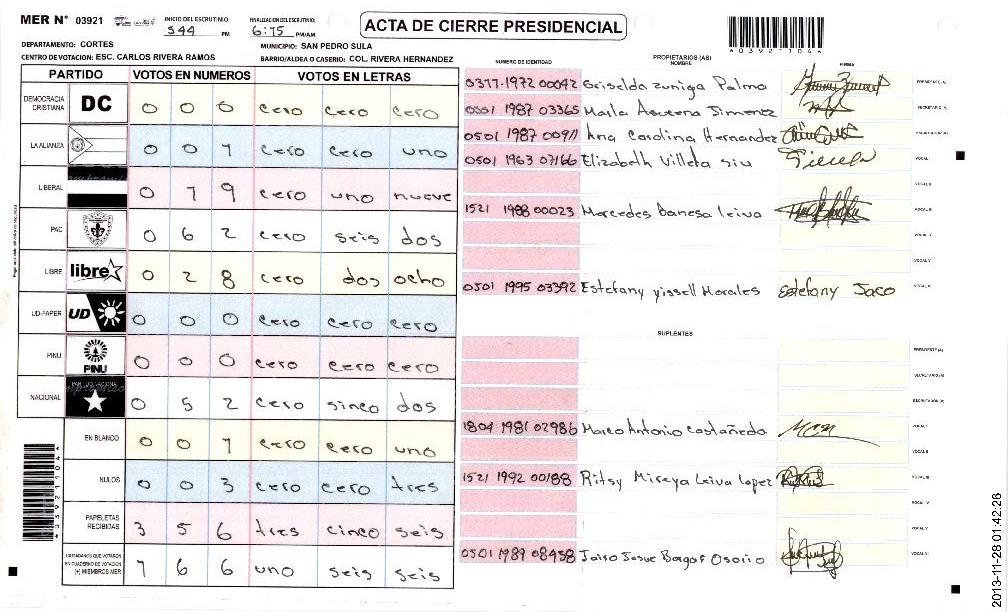 MER N° 03921
INICIO DEL ESCRUTINIO: 544 PM
FINALIZACION DEL ESCRUTINIO: 6:15 PM/AM
ACTA DE CIERRE PRESIDENCIAL
DEPARTAMENTO: CORTES
MUNICIPIO: SAN PEDRO SULA
CENTRO DE VOTACION: ESC. CARLOS RIVERA RAMOS
BARRIO/ALDEA O CASERIO: COL. RIVERA HERNANDEZ
4039211044
PARTIDO VOTOS EN NUMEROS VOTOS EN LETRAS
DEMOCRACIA CRISTIANA DC 0 0 0 cero cero cero
LA ALIANZA 0 0 1 cero cero uno
LIBERAL 0 1 9 cero uno nueve
PAC 0 6 2 cero seis dos
LIBRE libre 0 2 8 cero dos ocho
UD-FAPER UD 0 0 0 cero cero cero
PINU PINU 0 0 0 cero cero cero
NACIONAL 0 5 2 cero sinco dos
EN BLANCO 0 0 1 cero cero uno
NULOS 0 0 3 cero cero tres
PAPELETAS RECIBIDAS 3 5 6 tres cinco seis
CIUDADANOS QUE VOTARON EN CUADERNO DE VOTACION (+) MIEMBROS MER 1 6 6 uno seis seis
NUMERO DE IDENTIDAD PROPIETARIOS (AS) NOMBRE FIRMA
0377-1972 00092 Griselda zuniga Palmo PRESIDENTE (A)
1987 03365 Marla Jimenez SECRETARIO (A)
0501 1987 00911 Ana Carolina Hernandez ESCRUTADOR (A)
0501 1963 07166 Elizabeth Villeta siu VOCAL I
VOCAL II
1521 1988 00023 Mercedes Danesa Leiva VOCAL III
VOCAL IV
VOCAL V
0501 1995 03392 Estefany yissell Morales Estefany Jaco VOCAL VI
SUPLENTES
PRESIDENTE (A)
SECRETARIO (A)
ESCRUTADOR (A)
1804 1981 02986 Marco Antonio Castañedo VOCAL I
VOCAL II
1521 1992 00188 Ritsy Mireya Leiva Lopez VOCAL III
VOCAL IV
VOCAL V
0501 1989 08458 Jairo Josue Osorio VOCAL VI
4039211044
2013-11-28 01:42:26